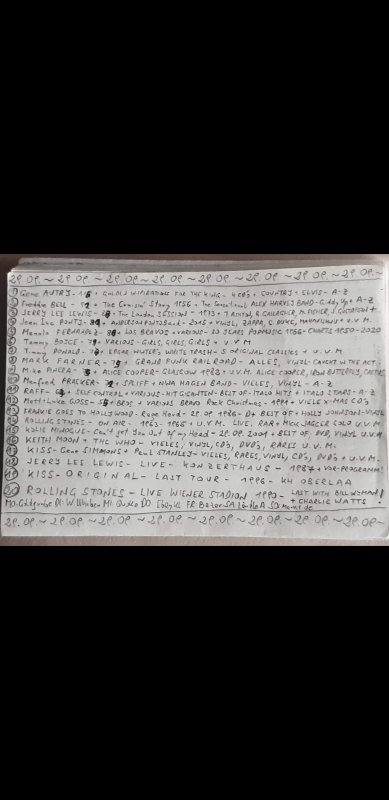 29.09.~29.09.~29.09.~29.09.~29.09.~29.09.~29.09.~29.09.~
① Gene AUTRY- + GOLDEN FOR THE KING- 4CD's + COUNTRY + ELVIS - A-Z
② Freddie BELL - + The Story 1956 + The Sensational ALEX HARVEY BAND - Giddy Up + A-Z
③ JERRY LEE LEWIS - + The London SESSION - 1973 + T. ASHTON, R. GALLAGHER,
④ Jean Luc PONTY- + ANDERSON PONTY Band - 2015 + VINYL, ZAPPA, G. DUKE, MAHAVISHNU + U.V.M.
⑤ Manolo FERNANDEZ- + LOS BRAVOS + VARIOUS - 50 YEARS POPMUSIC 1966 - CHARTS 1950-2020
⑥ Tommy BOYCE - + VARIOUS - GIRLS, GIRLS, GIRLS + U.V.M
⑦ Timmy DONALD - + EDGAR WINTER'S WHITE TRASH - 5 ORIGINAL CLASSICS + U.V.M.
⑧ MARK FARNER - + GRAND FUNK RAILROAD - ALLES, VINYL - CAUGHT IN THE ACT
⑨ Mike PINERA - + ALICE COOPER - GLASGOW 1982 + U.V.M. ALICE COOPER, IRON BUTTERFLY, CACTUS
⑩ Manfred PRAEKER - + SPLIFF + NINA HAGEN BAND - VIELES, VINYL - A-Z
⑪ RAFF - + SELF CONTROL + VARIOUS - HIT GIGANTEN - BEST OF - ITALO HITS + ITALO 2 STARS - A-Z
⑫ Matt + Luke GOSS - + BROS + VARIOUS BRAVO Rock Christmas - 1991 + VIELE X-MAS CD'S
⑬ FRANKIE GOES TO HOLLYWOOD - Rage Hard - 29.09.1986 - D + BEST OF + HOLLY JOHNSON - VINYL
⑭ ROLLING STONES - ON AIR - 1963 - 1965 + U.V.M. LIVE, RAR + MICK JAGGER SOLO U.V.M.
⑮ KYLIE MINOGUE - Can't get You Out of my Head - 29.09.2001 + BEST OF, DVD, VINYL U.V.M.
⑯ KEITH MOON + THE WHO - VIELES, VINYL, CD'S, DVD'S, RARES U.V.M.
⑰ KISS - Gene SIMMONS + Paul STANLEY - VIELES, RARES, VINYL, CD'S, DVD'S + U.V.M.
⑱ JERRY LEE LEWIS - LIVE - KONZERTHAUS - 1987 + VOR-PROGRAMM!
⑲ KISS - ORIGINAL - LAST TOUR - 1996 - KH OBERLAA
⑳ ROLLING STONES - LIVE WIENER STADION 1990 - LAST WITH BILL WYMAN!
+ CHARLIE WATTS!
MO. Goldgrube DI. MI. DO FR. Bazar SA SO.
29.09.~29.09.~29.09.~29.09.~29.09.~29.09.~29.09.~29.09.